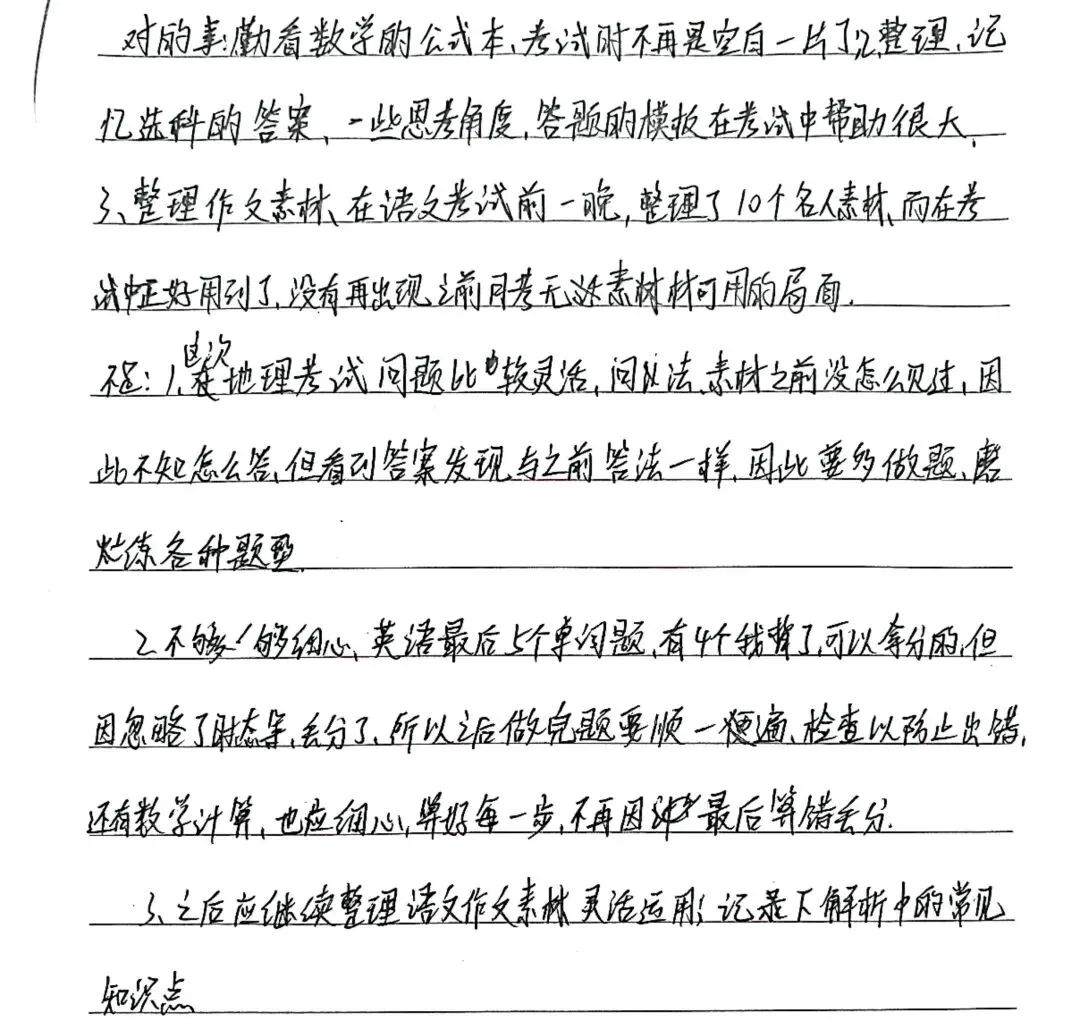 对的事:勤看数学的公式本、考试时不再是空白一片了2、整理、记
忆选科的答案、一些思考角度,答题的模板在考试中帮助很大、
3、整理作文素材、在语文考试前一晚,整理了10个名人素材、而在考
试中正好用到了,没有再出现之前月考无素材可用的局面.
不足:1、这次地理考试问题比较灵活,问法、素材之前没怎么见过,因
此不知怎么答,但看到答案发现与之前答法一样,因此要多做题、磨
炼各种题型.
2、不够细心、英语最后5个单词题,有4个我背了,可以拿分的,但
因忽略了时态等,丢分了、所以之后做完题要顺一遍、检查以防止出错,
还有数学计算,也应细心,算好每一步,不再因最后算错丢分.
3、之后应继续整理语文作文素材灵活运用;记录下解析中的常见
知识点